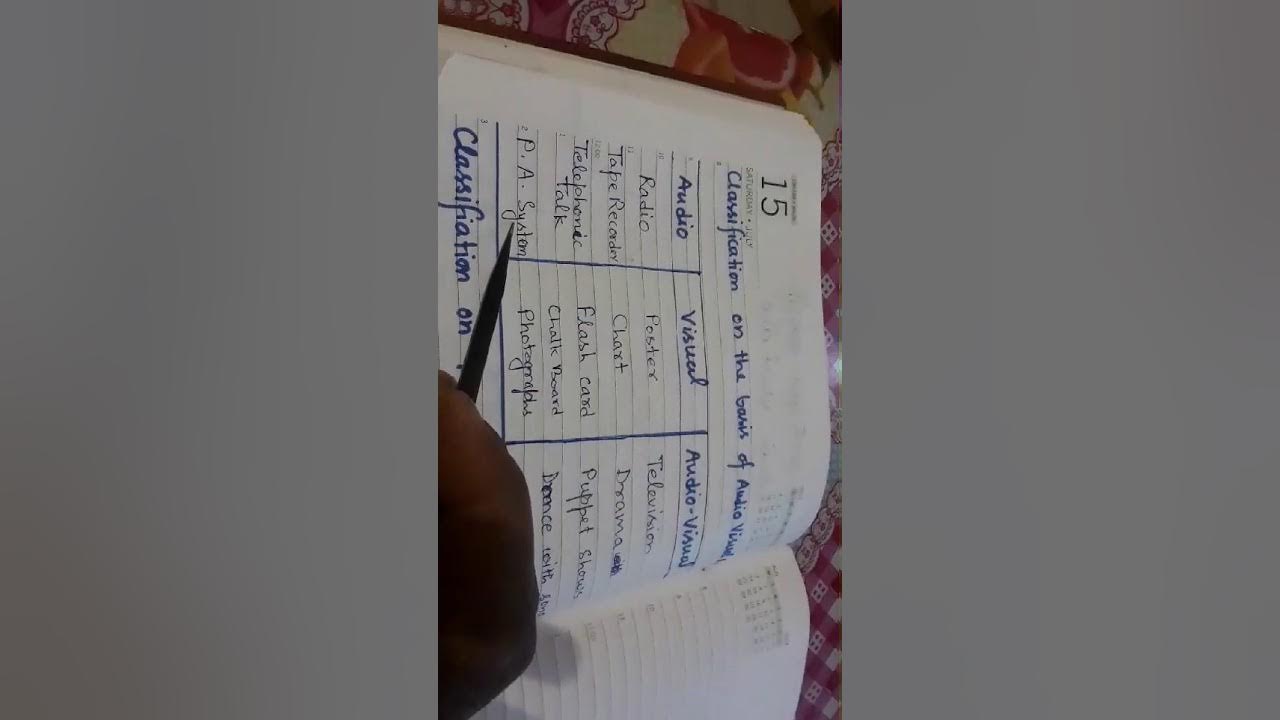 15
SATURDAY • JULY
Classification on the basis of Audio Visual
Audio Visual Audio-Visual
Radio Poster Television
Tape Recorder Chart Drama with
Telephonic Talk Flash card Puppet Shows
Chalk Board Dance with song
P.A. System Photographs
Classifiation on